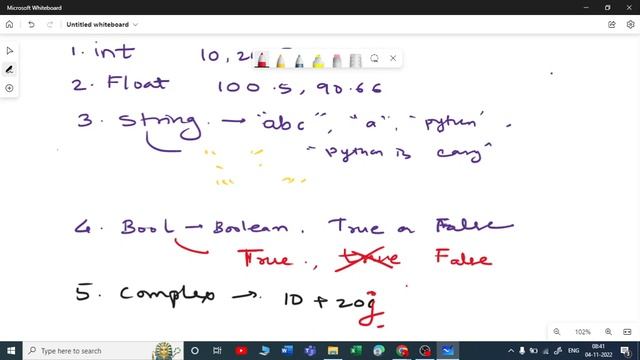 Microsoft Whiteboard
Untitled whiteboard
1. int 10, 2
2. Float 100.5, 90.66
3. String → "abc", "a", "python",
"python is easy"
4. Bool → Boolean. True or False
True, true False
5. Complex → 10 + 20j
102%
08:41
04-11-2022